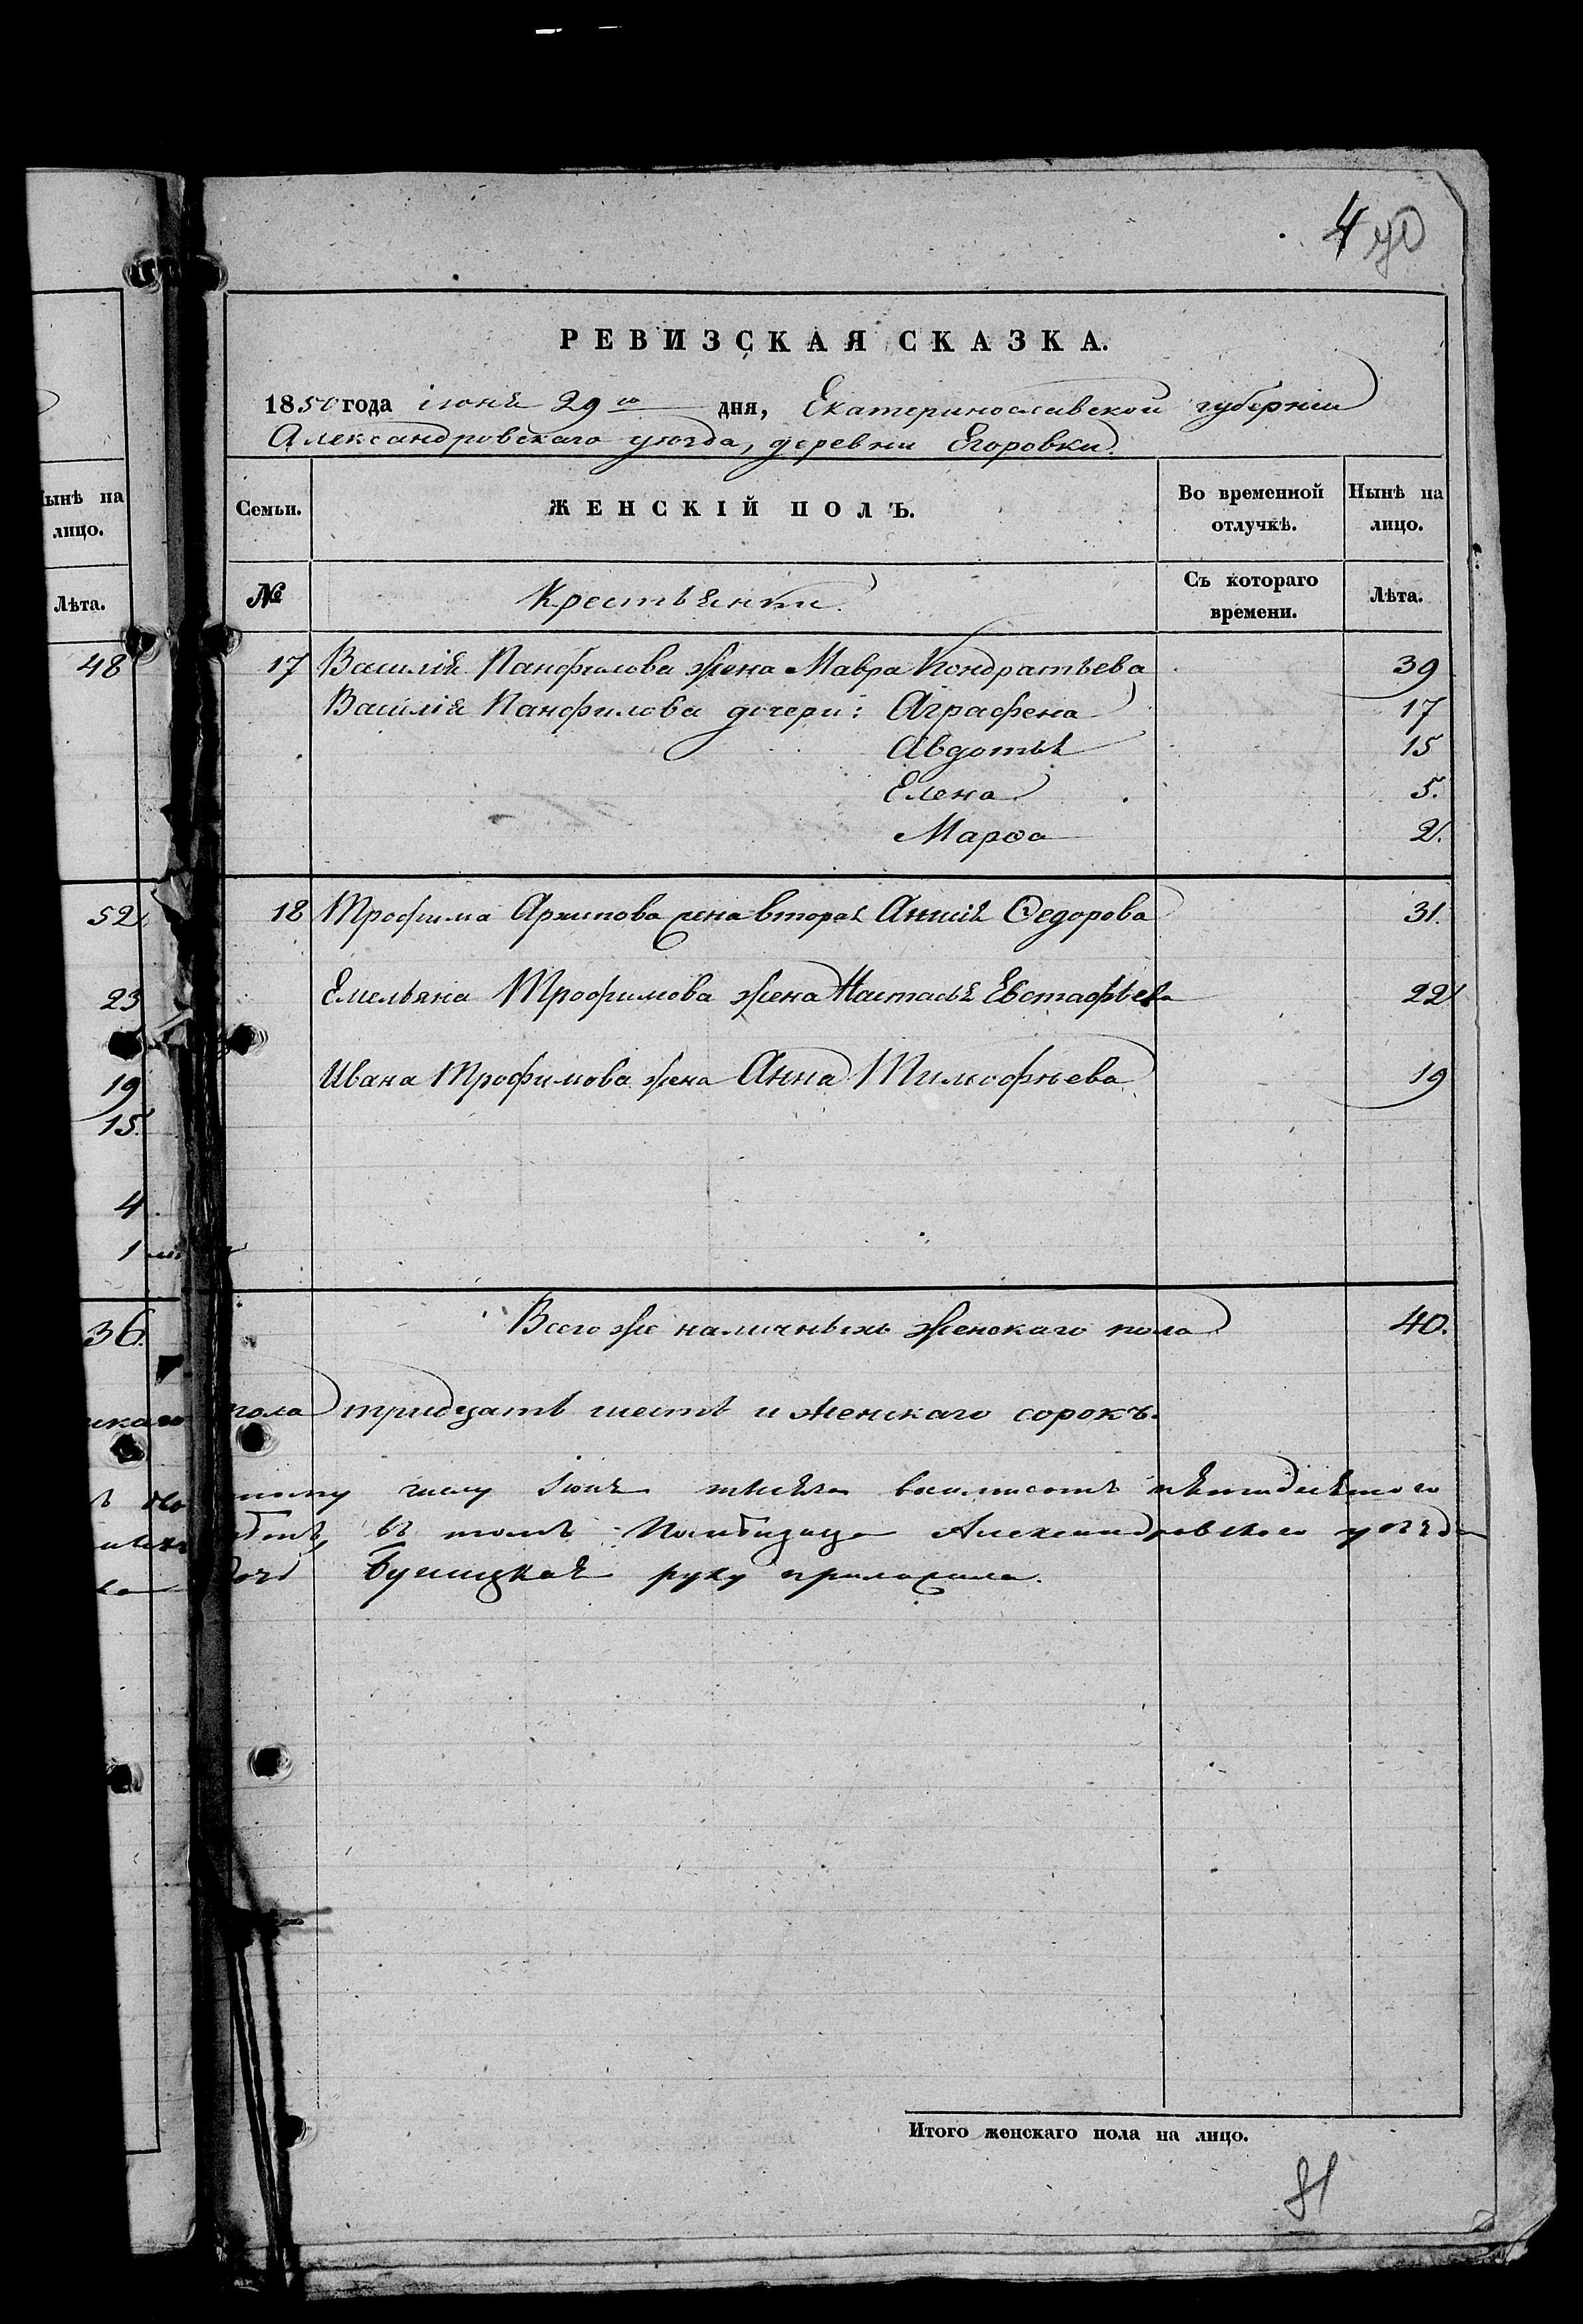 4
РЕВИЗСКАЯ СКАЗКА.
1850 года іюня 29го дня, Екатеринославской губерніи
Александровскаго уѣзда, деревни Егоровки.
Нынѣ на лицо.
Семьи.
ЖЕНСКІЙ ПОЛЪ.
Во временной отлучкѣ.
Нынѣ на лицо.
Лѣта.
№
Крестьянки.
Съ котораго времени.
Лѣта.
48
17 Василія Панфилова жена Мавра Кондратьева 39
Василія Панфилова дочери: Аграфена 17
Авдотья 15
Елена 5.
Марѳа 2.
52.
18 Трофима Архипова жена вторая Анисія Ѳедорова 31.
23
Емельяна Трофимова жена Настасья Евстафьева 22
19
Ивана Трофимова жена Анна Тимофѣева 19
15.
4
1
36.
Всего же наличныхъ женскаго пола 40.
пола тридцать шесть и женскаго сорокъ.
числу Іюня мѣсяца восимисотъ пятидесятого
въ томъ Помѣщица Александровского уѣзда
руку приложила.
Итого женскаго пола на лицо.
81